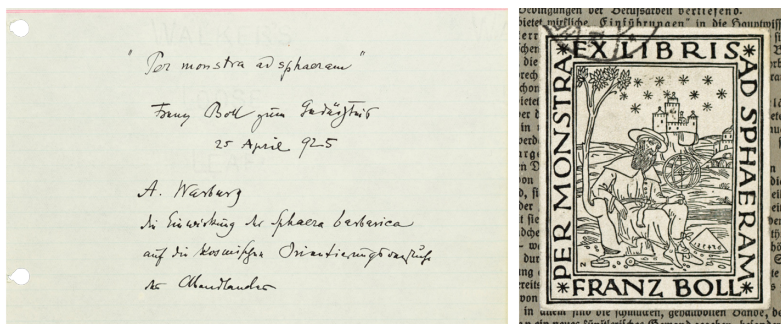 "Per monstra ad sphaeram"
Franz Boll zum Gedächtnis
25 April 925
A. Warburg
die Einwirkung der Sphaera barbarica
auf die kosmischen Orientierungsversuche
des Abendlandes
EX LIBRIS
PER MONSTRA
AD SPHAERAM
FRANZ BOLL